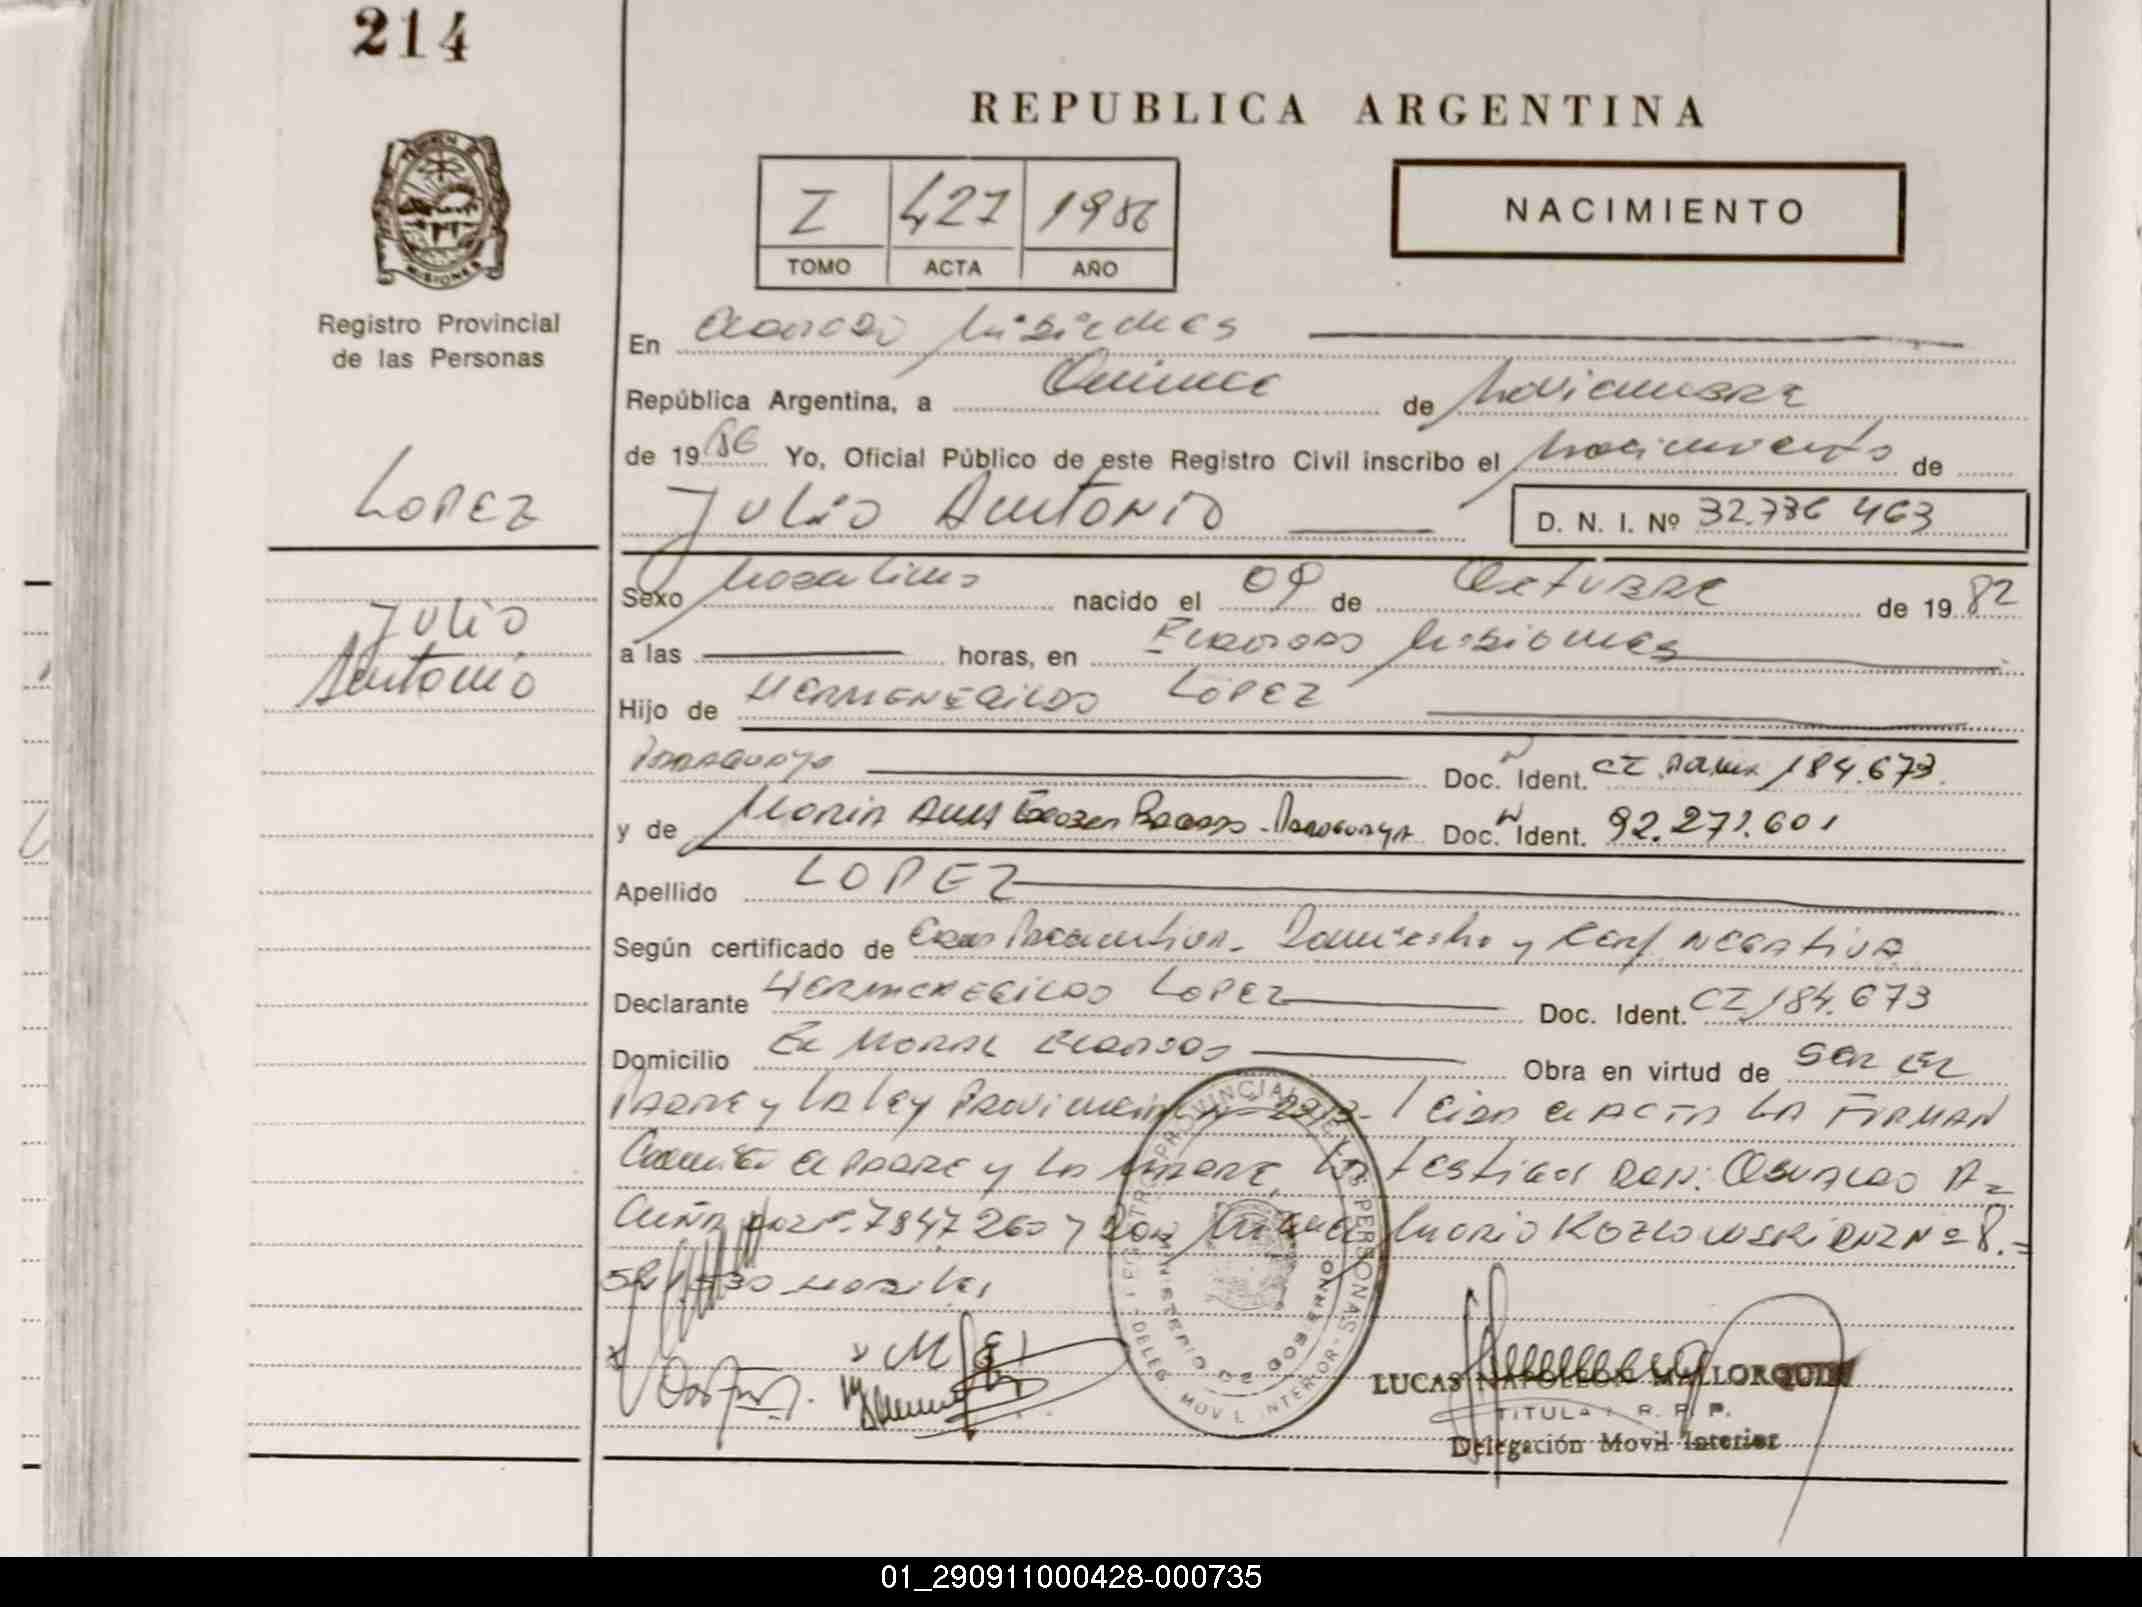 214
REPUBLICA ARGENTINA
I 427 1986
TOMO ACTA AÑO
NACIMIENTO
MISIONES
Registro Provincial
de las Personas
En Eldorado Misiones
República Argentina, a Quince de Noviembre
de 1986 Yo, Oficial Público de este Registro Civil inscribo el Nacimiento de
LOPEZ
Julio Antonio
D. N. I. Nº 32.736 463
Julio
Antonio
Sexo Masculino nacido el 09 de Octubre de 1982
a las horas, en Eldorado Misiones
Hijo de Hermenegildo LOPEZ
Paraguayo Doc. Ident. CI 184.673
y de Maria Paraguaya Doc. Ident. 92.271.601
Apellido LOPEZ
Según certificado de Domicilio y Cert Negativa
Declarante Hermenegildo LOPEZ Doc. Ident. CI 184.673
Domicilio Eldorado Obra en virtud de ser el
Padre y la Ley Provincial Leida el acta la firman
el padre y la madre, testigos Don: Osvaldo A=
cuña 7847260 y Don Mario Kozlowski DNI Nº 8.=
REGISTRO PROVINCIAL DE LAS PERSONAS
MINISTERIO DE GOBIERNO
DELEG. MOVIL INTERIOR
LUCAS NAPOLEON MALLORQUIN
TITULAR R. P. P.
Delegación Movil Interior
01_290911000428-000735